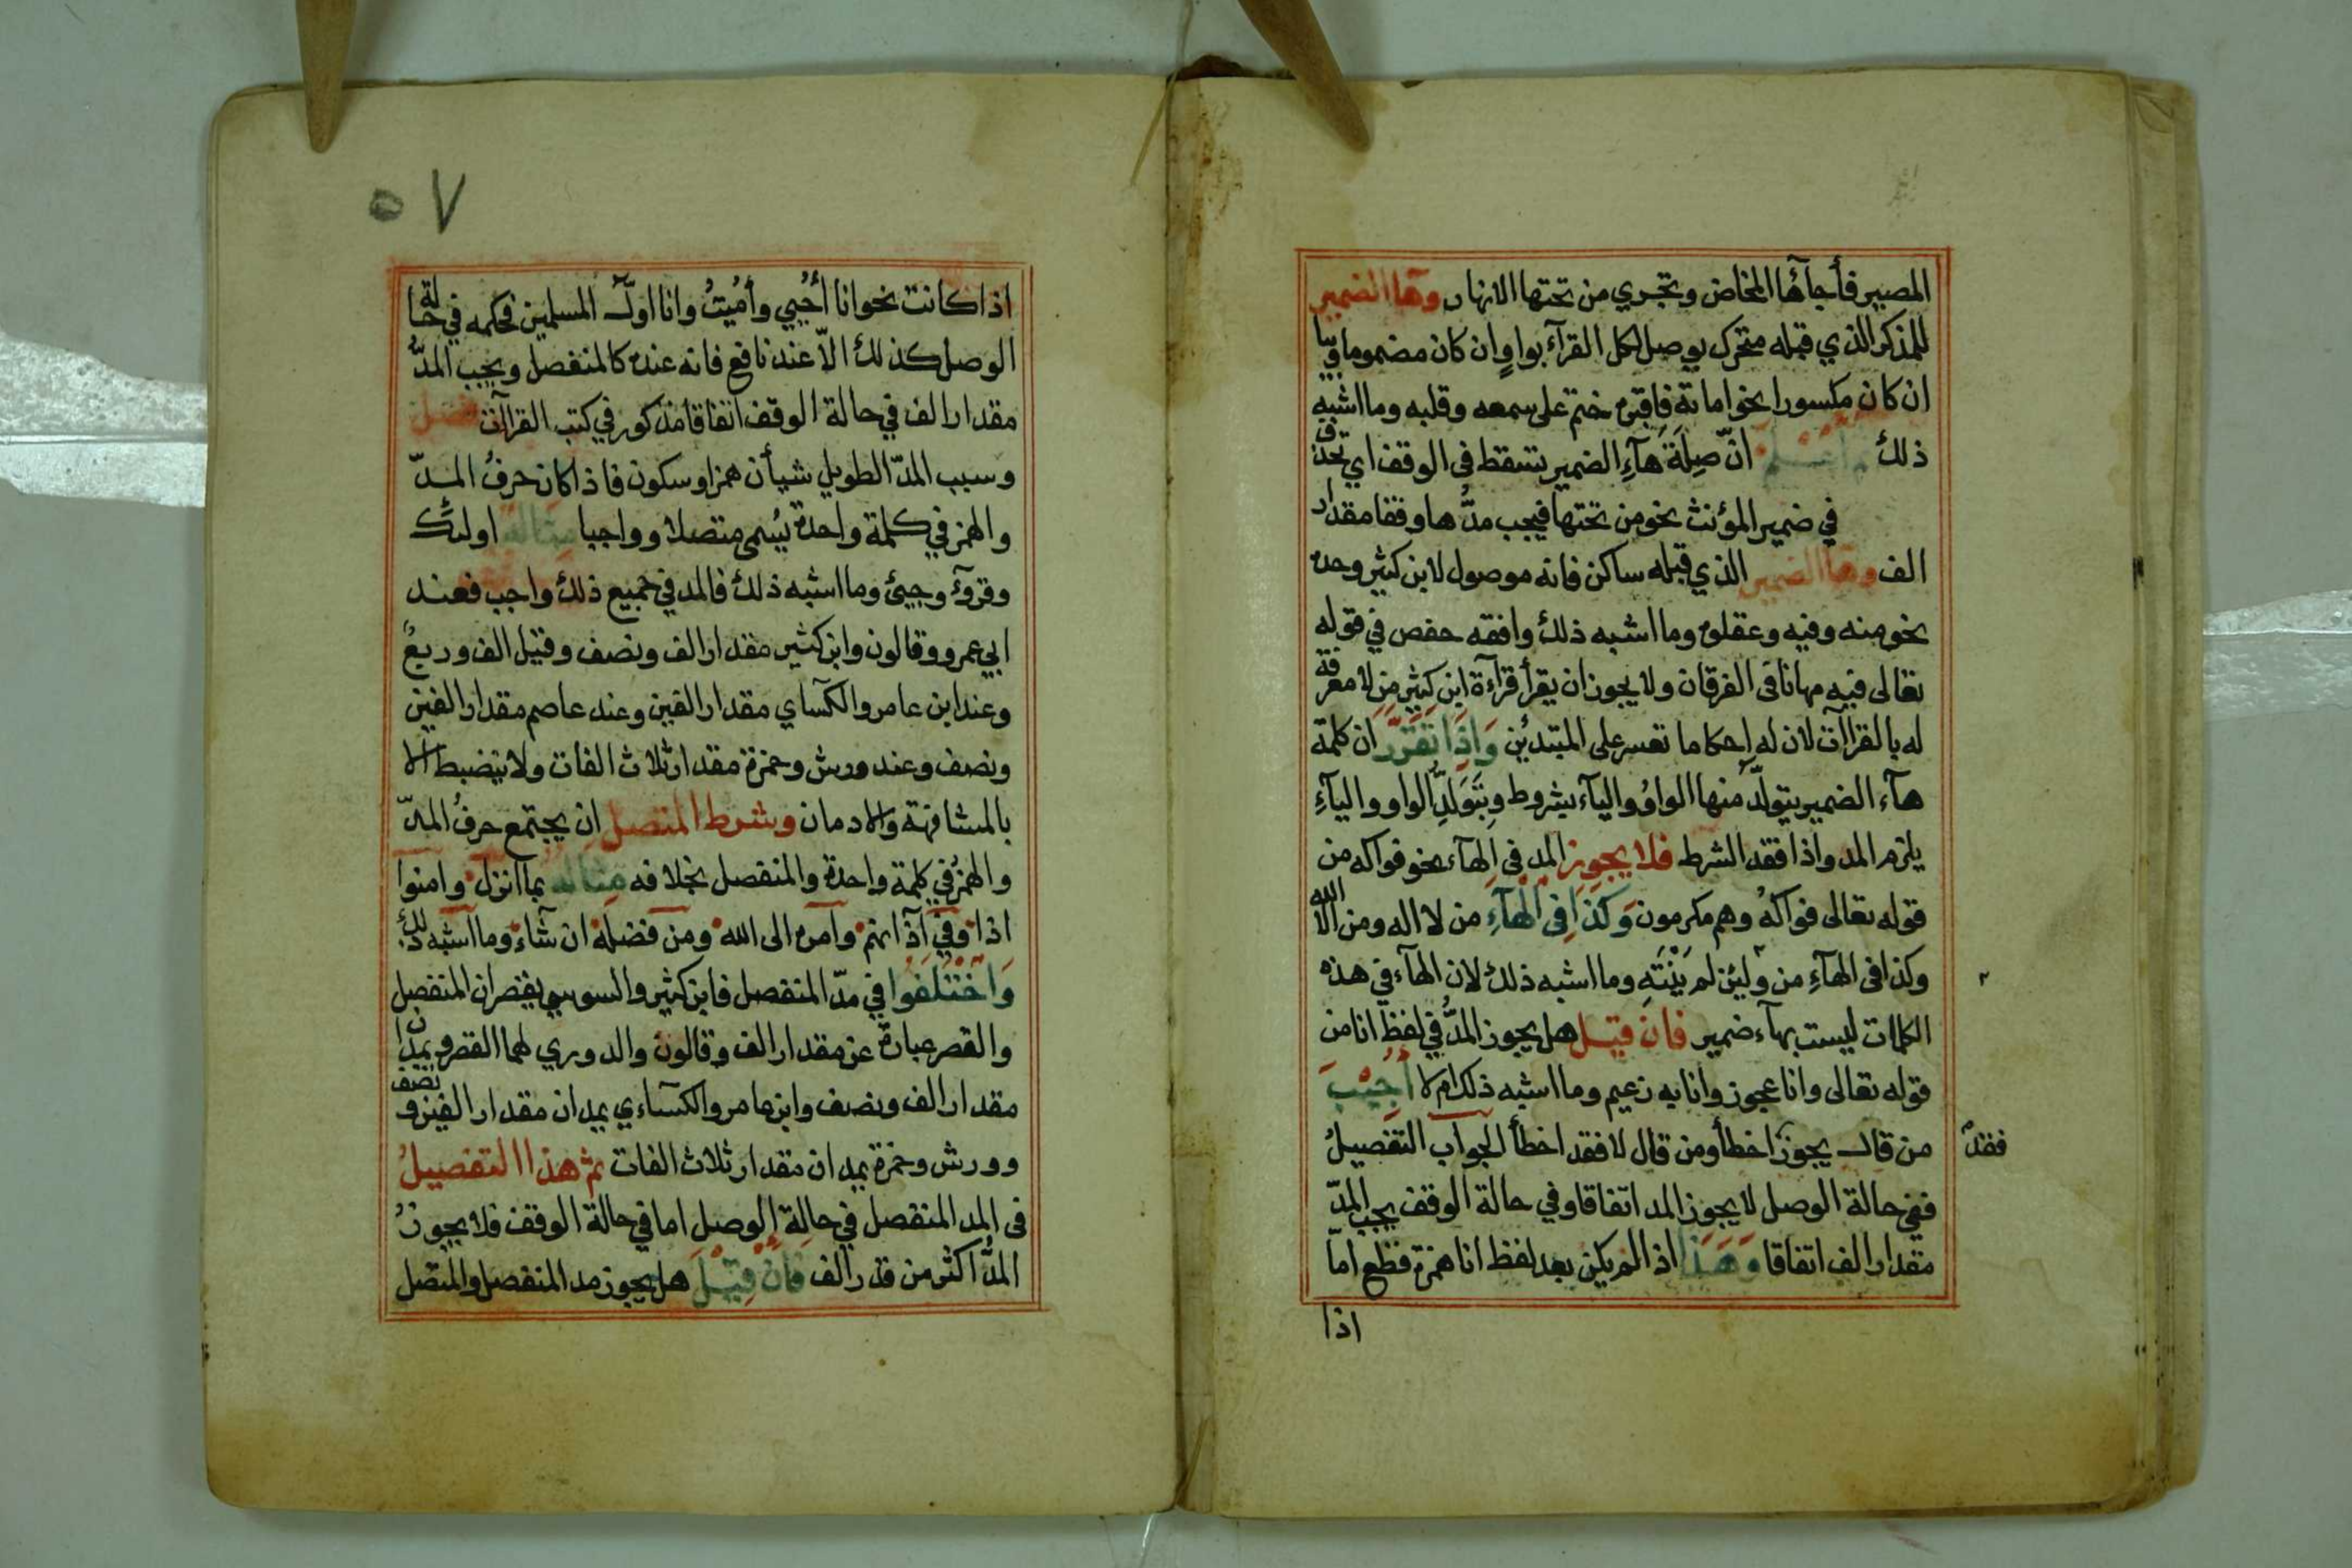 المصير فأجآها المخاض وتجري من تحتها الانهار وها الضمير
للمذكر الذي قبله متحرك يوصل لكل القرآء بواو ان كان مضموما وبيا
ان كان مكسورا نحو اماته فاقبره ختم على سمعه وقلبه وما اشبه
ذلك واعلم انّ صِلَةَ هَآءِ الضمير تسقط فى الوقف اي تحذف
في ضمير المؤنث نحو من تحتها فيجب مدُّها وقفا مقدار
الف وها الضمير الذي قبله ساكن فانه موصول لابن كثير وحده
نحو منه وفيه وعقلوه وما اشبه ذلك وافقه حفص في قوله
تعالى فيه مهانا فى الفرقان ولا يجوز ان يقرأ قرآءة ابن كثير من لا معرفة
له بالقرآات لان له احكاما تعسر على المبتدئين وَاِذَا تَقَرَّرَ ان كلمة
هآء الضمير يتولّد منها الواوُ واليآء بشروط وبتَوَلُّدِ الواو واليآءِ
يلزم المد واذا فقد الشرط فلا يجوز المد فى الهآء نحو فواكه من
قوله تعالى فواكهُ وهم مكرمون وَكَذَا فِى الْهَآءِ من لا اله ومن الا الله
وكذا فى الهآءِ من ولئن لم يَنْتَهِ وما اشبه ذلك لان الهآء في هذه
الكلمات ليست بهآء ضمير فان قيل هل يجوز المدُّ في لفظ انا من
قوله تعالى وانا عجوز وانا به زعيم وما اشبه ذلك ام لا أُجِيْبَ
من قال يجوز اخطأ ومن قال لا فقد اخطأ الجواب التفصيلُ
فقد
ففي حالة الوصل لا يجوز المد اتفاقا وفي حالة الوقف يجب المدّ
مقدار الف اتفاقا وَهَذَا اذ الم يكن بعد لفظ انا همزة قطع امّا
اذا
٥٧
اذا كانت نحو انا أُحْيي وأُمِيْتُ وانا اول المسلمين فحكمه في حالة
الوصل كذلك الاّ عند نافع فانه عنده كالمنفصل ويجب المدُّ
مقدار الف في حالة الوقف اتفاقا مذكور في كتب القرآات فصل
وسبب المدّ الطويل شيأن همز او سكون فاذا كان حرفُ المدّ
والهمز في كلمة واحدة يُسمى متصلا وواجبا مثاله اولئك
وقروٓء وجيئ وما اشبه ذلك فالمد في جميع ذلك واجب فعند
ابي عمرو وقالون وابن كثير مقدار الف ونصف وقيل الف وربعُ
وعند ابن عامر والكسآي مقدار الفين وعند عاصم مقدار الفين
ونصف وعند ورش وحمزة مقدار ثلاث الفات ولا ينضبط الا
بالمشافهة والادمان وشرط المتصل ان يجتمع حرفُ المدّ
والهمزُ في كلمة واحدة والمنفصل بخلافه مثاله بمآ انزل وامنوا
اذا وفي آذآنهم وآمره الى الله ومن فضله ان شآء وما اشبه ذلك
وَاخْتَلَفُوا في مدّ المنفصل فابن كثير والسوسي يقصران المنفصل
والقصر عبارة عن مقدار الف وقالون والدوري لهما القصر ويمدان
مقدار الف ونصف وابن عامر والكسآءي يمدان مقدار الفين ونصف
وورش وحمزة يمدان مقدار ثلاث الفات ثم هذا التفصيلُ
فى المد المنفصل في حالة الوصل اما في حالة الوقف فلا يجوزُ
المدُّ اكثر من قدر الف فَاِنْ قِيْلَ هل يجوز مد المنفصل والمتصل